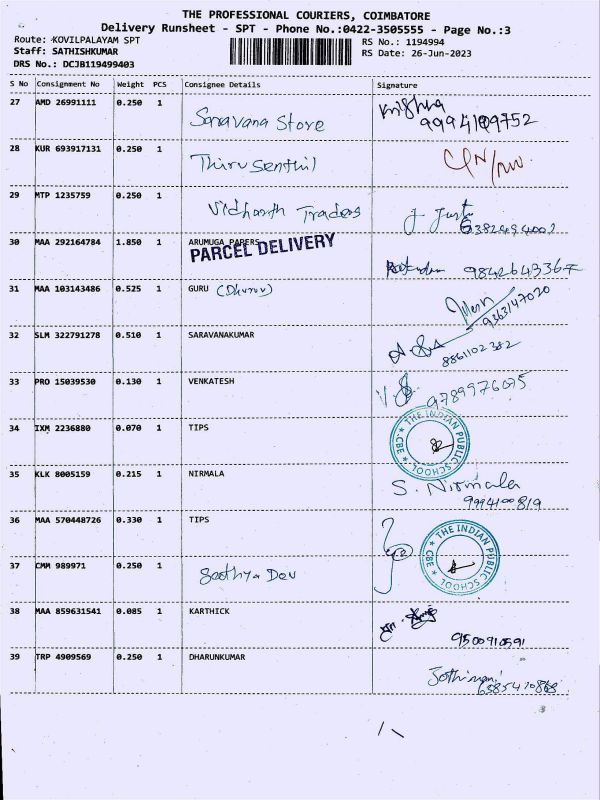 THE PROFESSIONAL COURIERS, COIMBATORE
Delivery Runsheet - SPT - Phone No.:0422-3505555 - Page No.:3
Route: KOVILPALAYAM SPT
RS No.: 1194994
Staff: SATHISHKUMAR
RS Date: 26-Jun-2023
DRS No.: DCJB119499403
S No Consignment No Weight PCS Consignee Details Signature
27 AMD 26991111 0.250 1 Saravana Store Krishna
9994109752
28 KUR 693917131 0.250 1 Thiru Senthil
29 MTP 1235759 0.250 1 Vidharth Traders
6382494002
30 MAA 292164784 1.850 1 ARUMUGA PAPERS
PARCEL DELIVERY
9842643367
31 MAA 103143486 0.525 1 GURU (Dhuruv)
9363147020
32 SLM 322791278 0.510 1 SARAVANAKUMAR
8861102382
33 PRO 15039530 0.130 1 VENKATESH
9789976075
34 IXM 2236880 0.070 1 TIPS
THE INDIAN PUBLIC SCHOOL * CBE *
35 KLK 8005159 0.215 1 NIRMALA S. Nirmala
9994100819
36 MAA 570448726 0.330 1 TIPS
THE INDIAN PUBLIC SCHOOL * CBE *
37 CMM 989971 0.250 1 Sathya Dev
38 MAA 859631541 0.085 1 KARTHICK
9500910591
39 TRP 4909569 0.250 1 DHARUNKUMAR Jothimani
6385410868